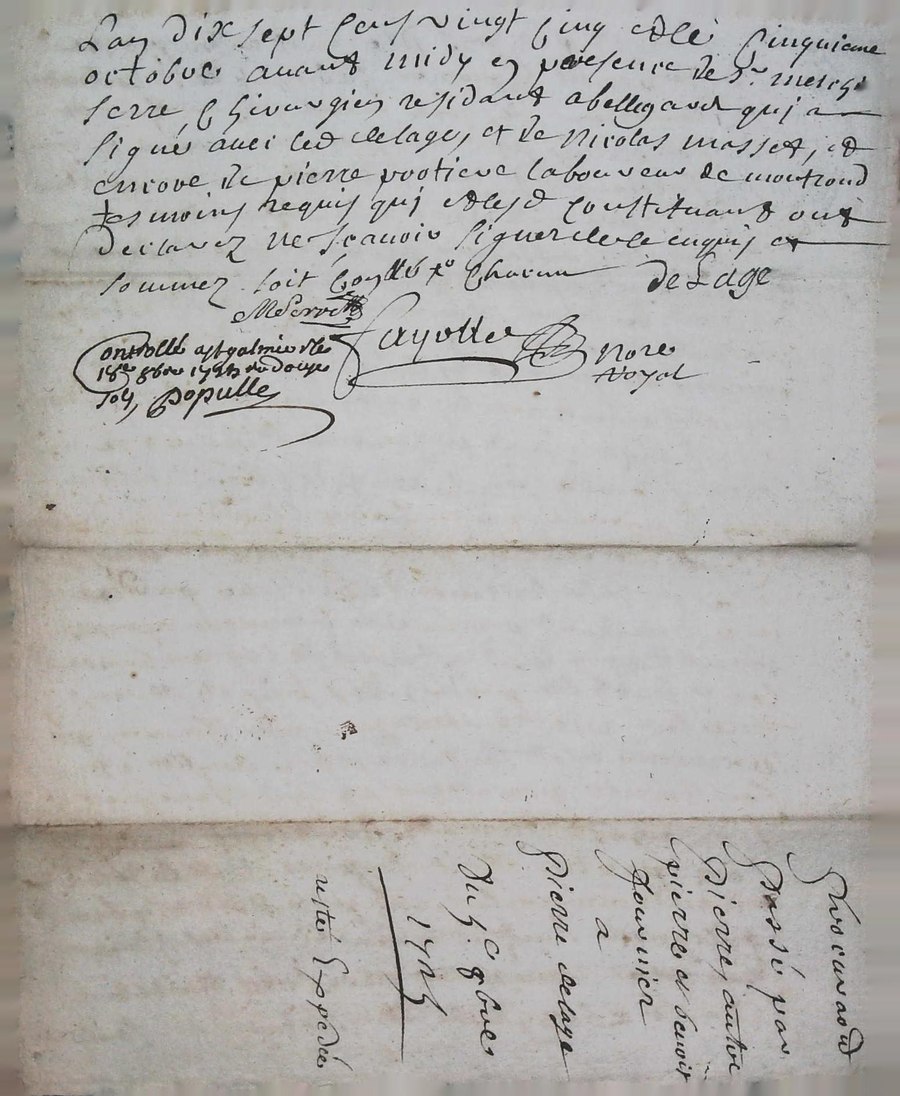 L'an dix sept cens vingt cinq et le cinquieme
octobre avant midy en presence de Sr
Serre, Chirurgien residant a bellegarde qui a
signé avec led delage, et de Nicolas masset, et
encore de pierre protiere laboureur de montrond
tesmoins requis qui et lesd constituant ont
declarez ne scavoir signer de ce enquis et
sommez. soit Conllé
de Lage
MSerre
fayolle
Nore
Royal
Controllé a st galmier le
18e 8bre 1725 r douze
sols, populle
procuraon
passé par
pierre, autre
pierre et benoit
fournier
a
pierre delage
du 5e 8bre
1725
Expedée